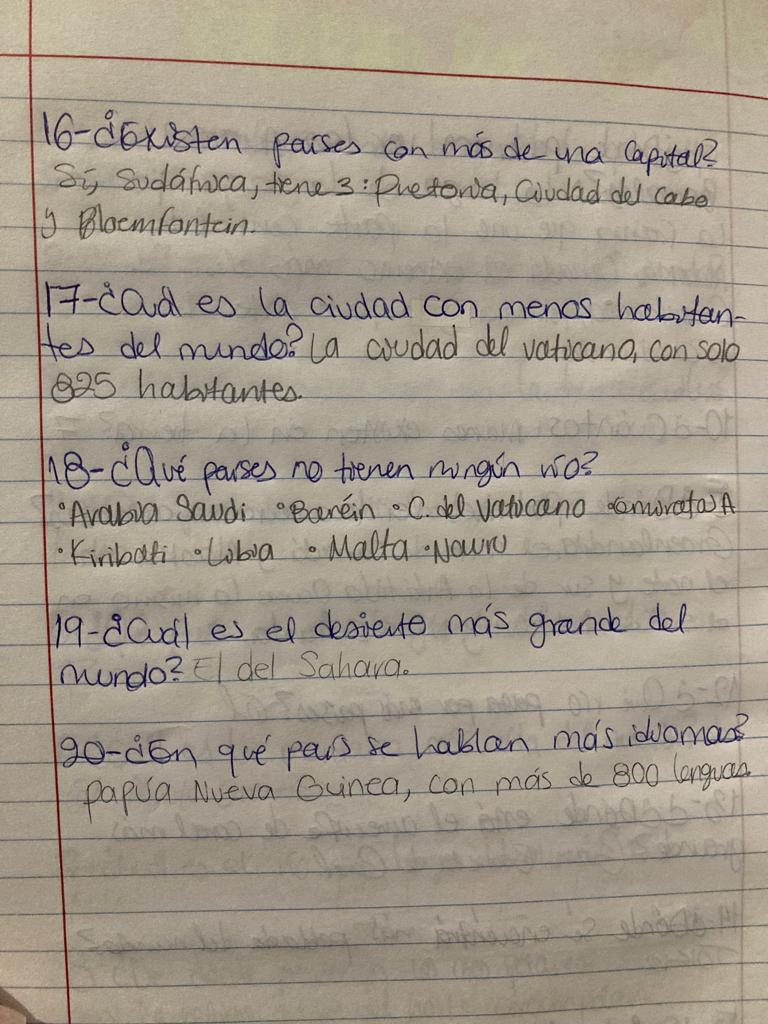 16-¿Existen países con más de una Capital?
Sí, Sudáfrica, tiene 3: Pretoria, Ciudad del Cabo
y Bloemfontein.
17-¿Cuál es la ciudad con menos habitan-
tes del mundo? La ciudad del vaticano, con solo
825 habitantes.
18-¿Qué países no tienen ningún río?
•Arabia Saudi •Baréin •C. del Vaticano •Emirato) A
•Kiribati •Libia •Malta •Nauru
19-¿Cuál es el desierto más grande del
mundo? El del Sahara.
20-¿En qué país se hablan más idiomas?
Papúa Nueva Guinea, con más de 800 lenguas